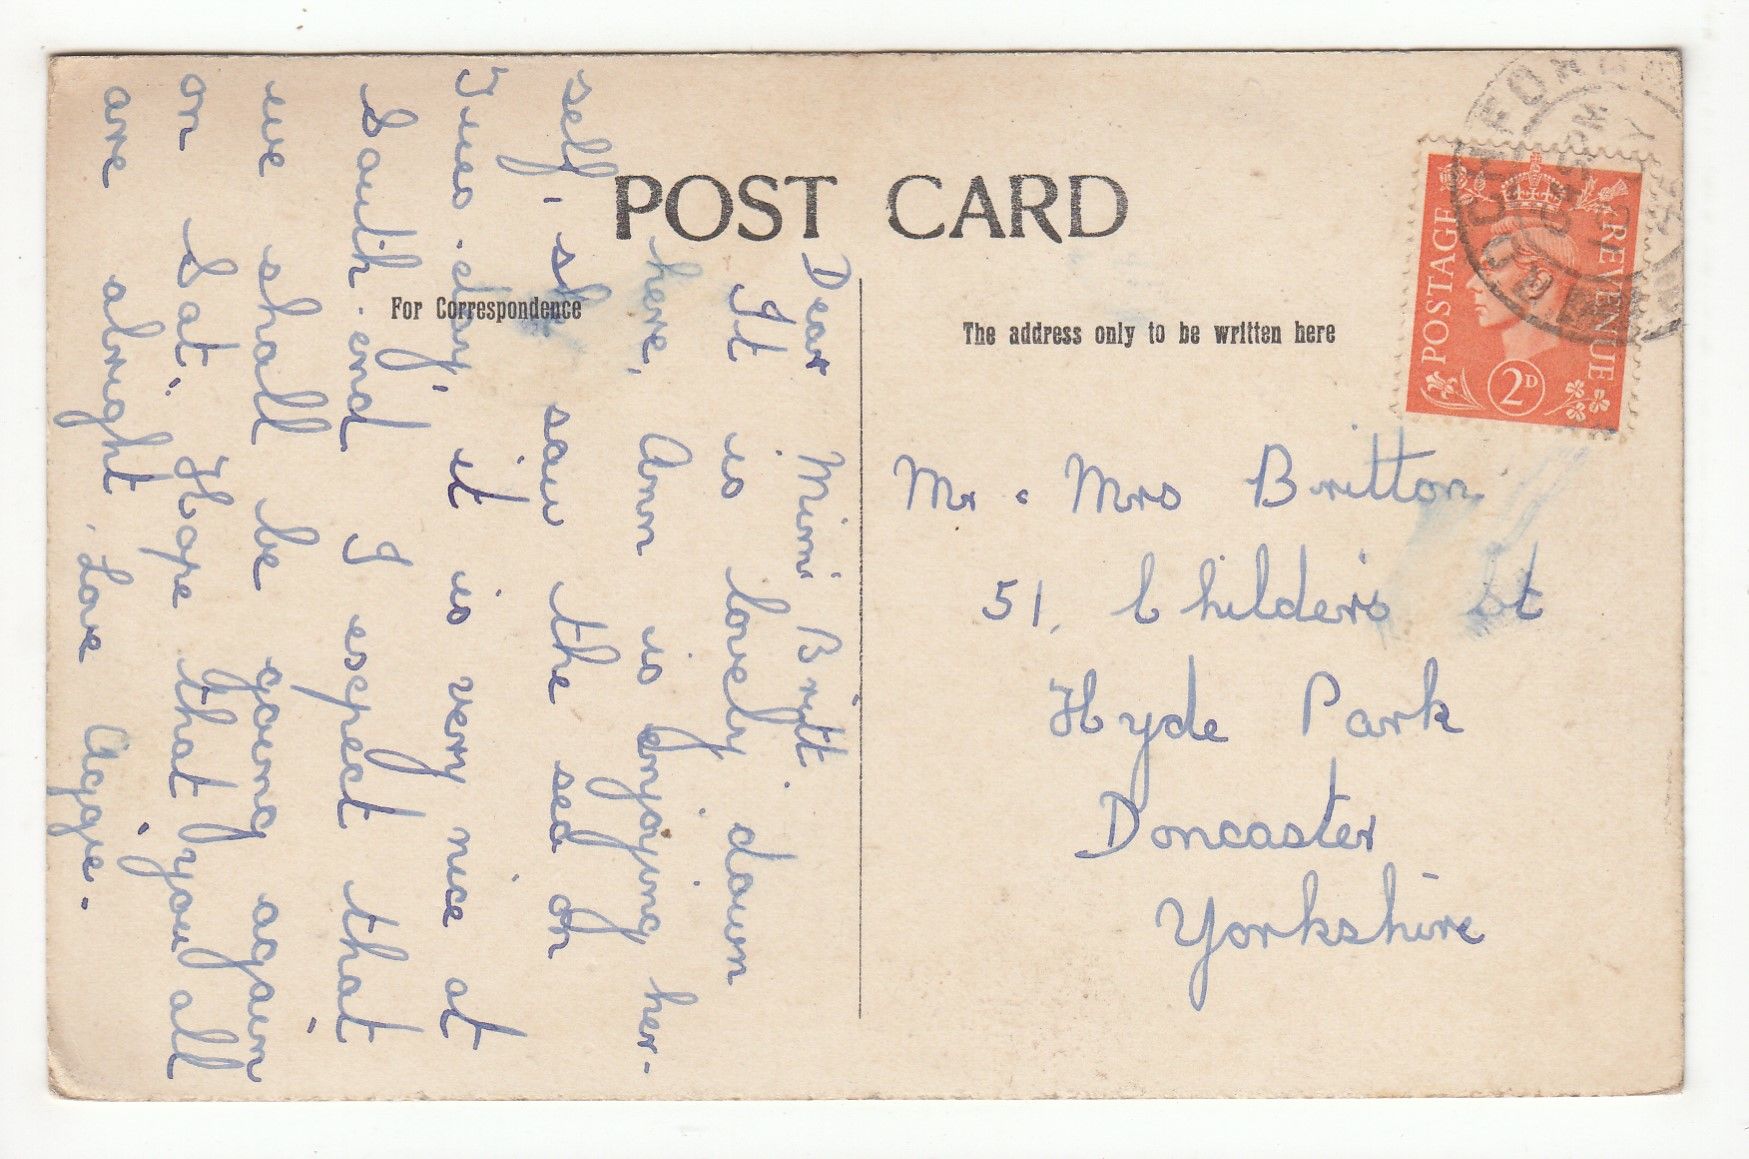 POST CARD
For Correspondence
The address only to be written here
Dear Mimi Britt.
It is lovely down
here, Ann is enjoying her-
self, she saw the sea on
Tues. day, it is very nice at
South-end I expect that
we shall be going again
on Sat, Hope that you all
are alright, Love Aggie.
Mr. Mrs Britton
51, Childers St
Hyde Park
Doncaster
Yorkshire
POSTAGE
REVENUE
2D
PM